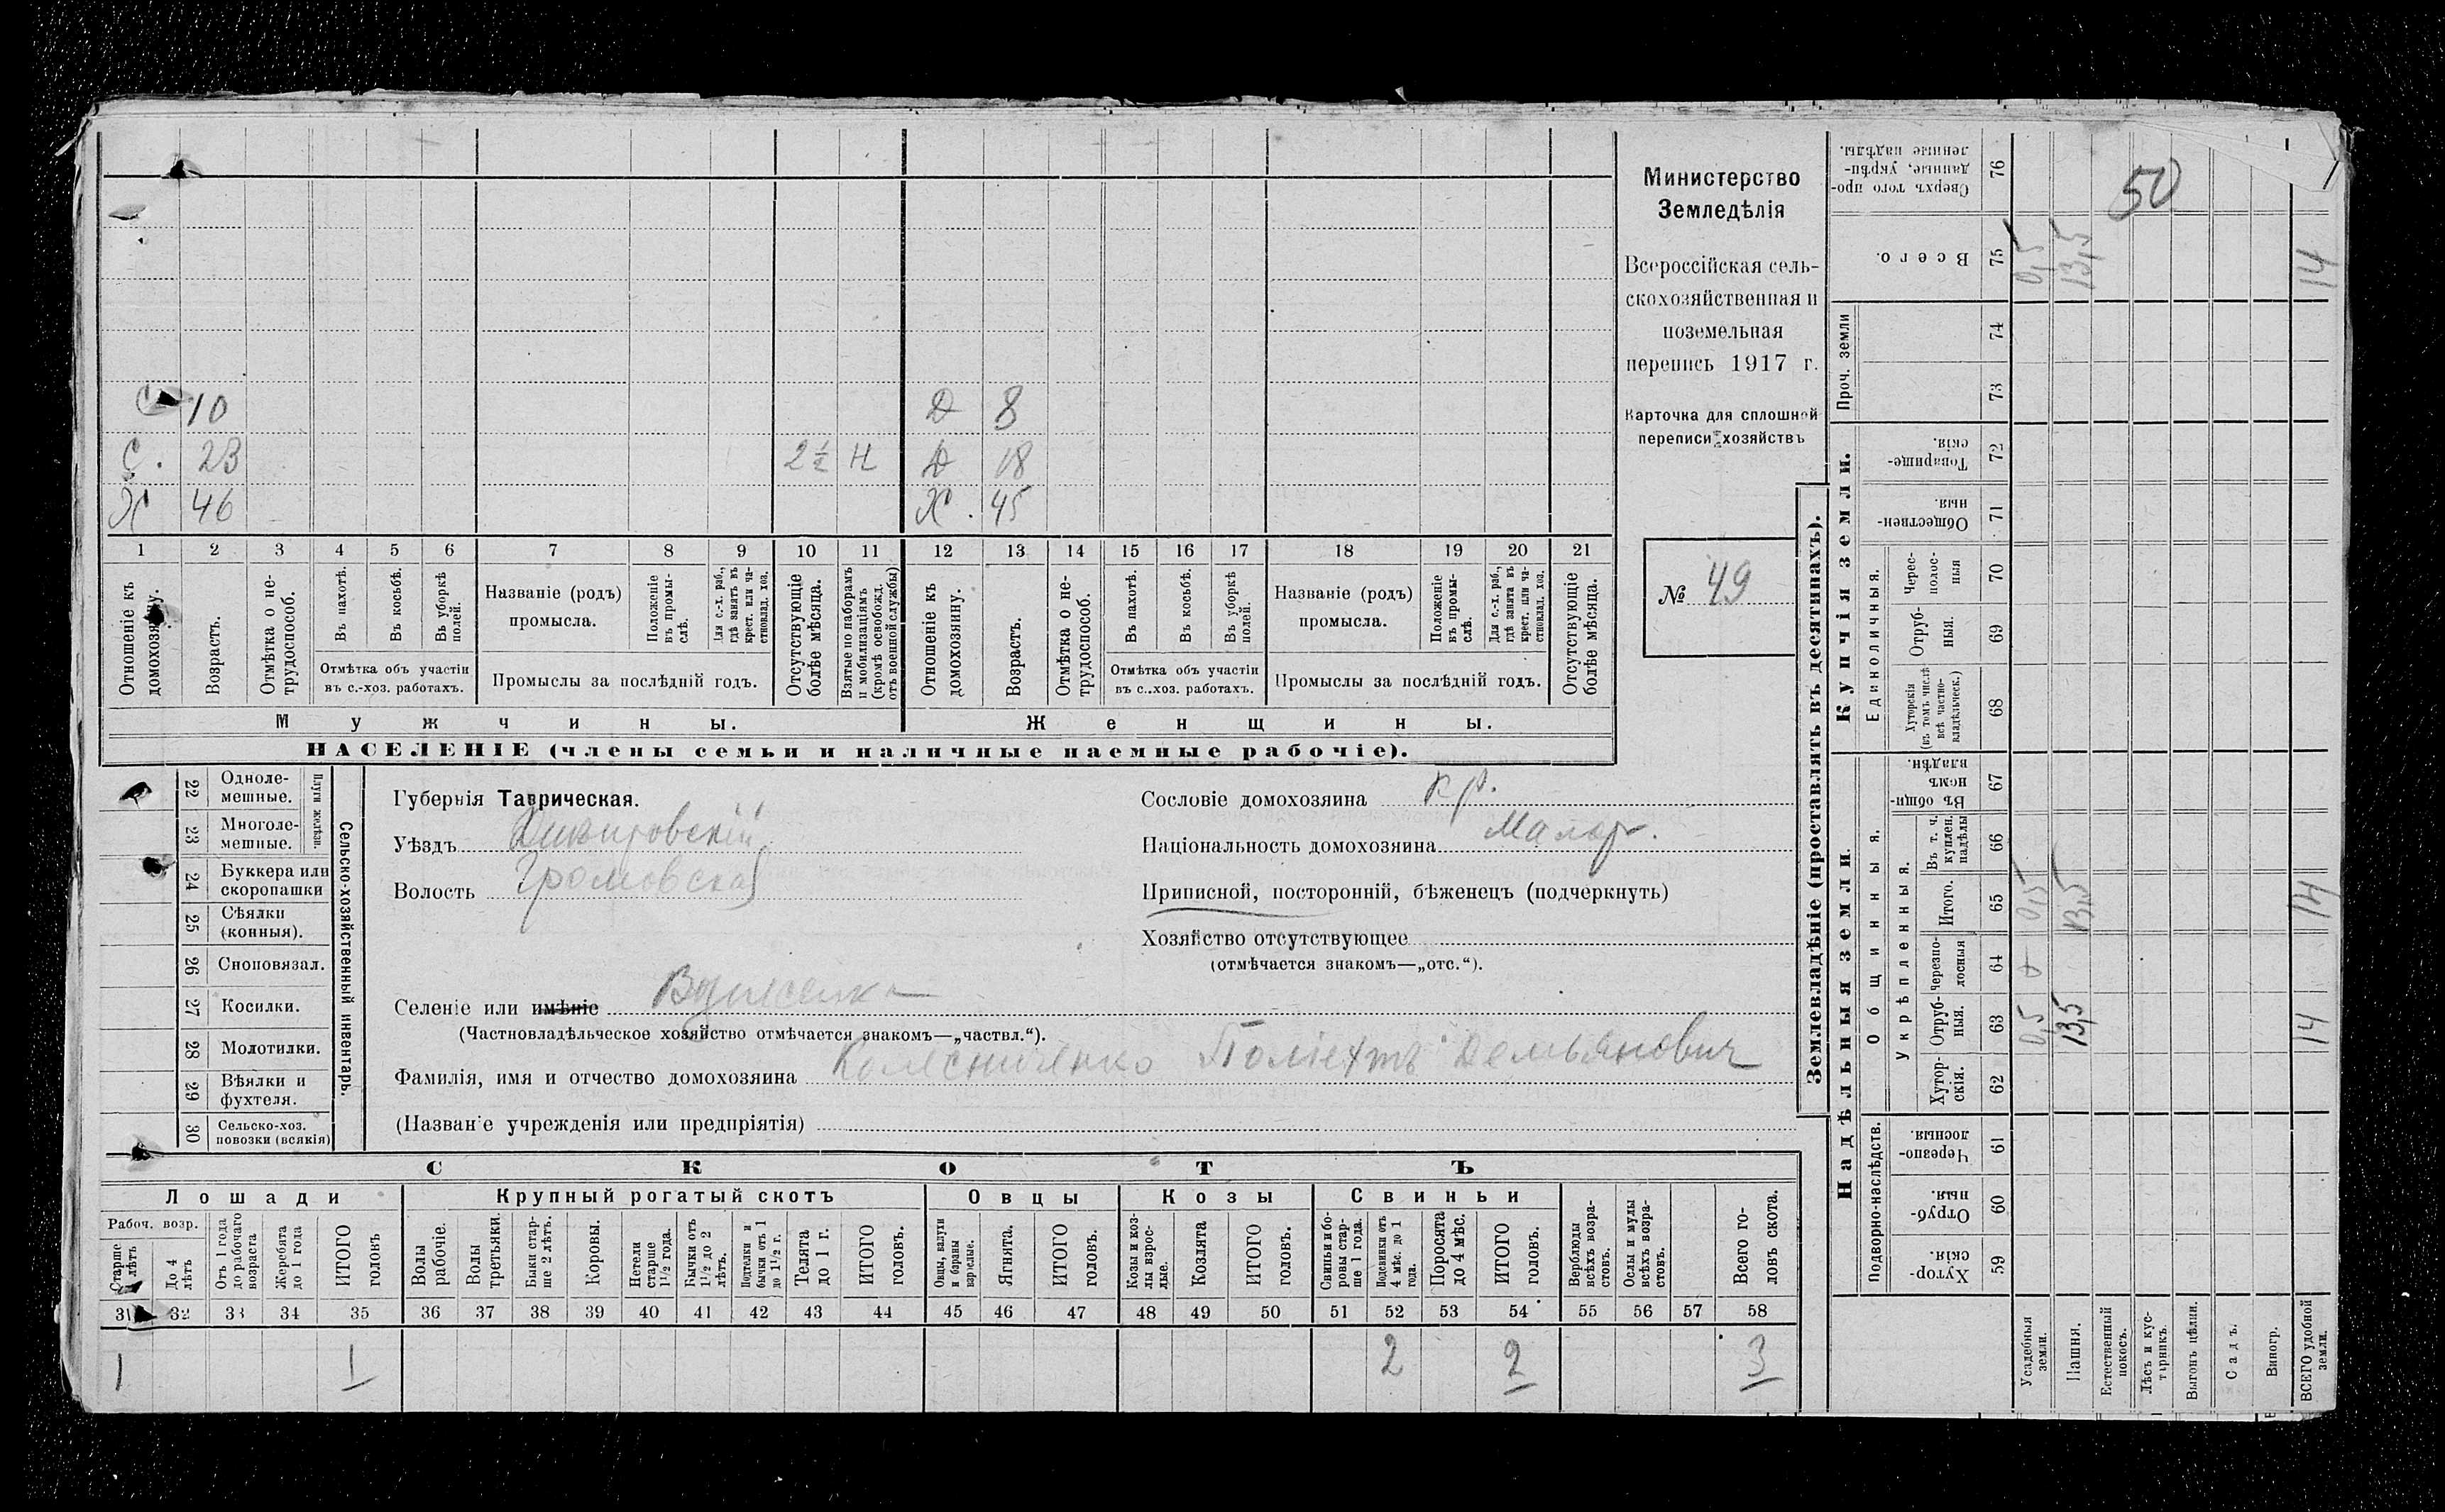 С 10 Д 8
С. 23 2½ Н Д 18
Х 46 Х. 45
1 2 3 4 5 6 7 8 9 10 11 12 13 14 15 16 17 18 19 20 21
Отношеніе къ домохозяину.
Возрастъ.
Отмѣтка о не-трудоспособ.
Въ пахотѣ.
Въ косьбѣ.
Въ уборкѣ полей.
Отмѣтка объ участіи
въ с.-хоз. работахъ.
Названіе (родъ)
промысла.
Положеніе въ промы-слѣ.
Для с.-х. раб., гдѣ занятъ въ крест. или ча-стновлад. хоз.
Промыслы за послѣдній годъ.
Отсутствующіе болѣе мѣсяца.
Взятые по наборамъ и мобилизаціямъ (кромѣ освобожд. отъ военной службы)
Отношеніе къ домохозяину.
Возрастъ.
Отмѣтка о не-трудоспособ.
Въ пахотѣ.
Въ косьбѣ.
Въ уборкѣ полей.
Отмѣтка объ участіи
въ с.-хоз. работахъ.
Названіе (родъ)
промысла.
Положеніе въ промы-слѣ.
Для с.-х. раб., гдѣ занята въ крест. или ча-стновлад. хоз.
Промыслы за послѣдній годъ.
Отсутствующіе болѣе мѣсяца.
Мужчины. Женщины.
НАСЕЛЕНІЕ (члены семьи и наличные наемные рабочіе).
Министерство
Земледѣлія
Всероссійская сель-
скохозяйственная и
поземельная
перепись 1917 г.
Карточка для сплошной
переписи хозяйствъ
№ 49
22 Одноле-мешные.
23 Многоле-мешные.
Плуги желѣзн.
24 Буккера или скоропашки
25 Сѣялки (конныя).
26 Сноповязал.
27 Косилки.
28 Молотилки.
29 Вѣялки и фухтеля.
30 Сельско-хоз. повозки (всякія)
Сельско-хозяйственный инвентарь.
Губернія Таврическая.
Уѣздъ
Волость Громовская
Селеніе или имѣніе
(Частновладѣльческое хозяйство отмѣчается знакомъ—„частвл.“).
Фамилія, имя и отчество домохозяина Демьянович
(Названіе учрежденія или предпріятія)
Сословіе домохозяина кр.
Національность домохозяина Малор.
Приписной, посторонній, бѣженецъ (подчеркнуть)
Хозяйство отсутствующее
(отмѣчается знакомъ—„отс.“).
СКОТЪ
Лошади Крупный рогатый скотъ Овцы Козы Свиньи
Рабоч. возр.
Старше 4 лѣтъ
До 4 лѣтъ
Отъ 1 года до рабочаго возраста
Жеребята до 1 года
ИТОГО головъ
Волы рабочіе.
Волы третьяки.
Быки стар-ше 2 лѣтъ.
Коровы.
Нетели старше 1½ года.
Бычки отъ 1½ до 2 лѣтъ.
Подтелки и бычки отъ 1 до 1½ г.
Телята до 1 г.
ИТОГО головъ.
Овцы, валухи и бараны взрослые.
Ягнята.
ИТОГО головъ.
Козы и коз-лы взрос-лые.
Козлята
ИТОГО головъ.
Свиньи и бо-ровы стар-ше 1 года.
Подсвинки отъ 4 мѣс. до 1 года.
Поросята до 4 мѣс.
ИТОГО головъ.
Верблюды всѣхъ возра-стовъ.
Ослы и мулы всѣхъ возра-стовъ.
Всего го-ловъ скота.
31 32 33 34 35 36 37 38 39 40 41 42 43 44 45 46 47 48 49 50 51 52 53 54 55 56 57 58
1 1 2 2 3
Землевладѣніе (проставлять въ десятинахъ).
Надѣльныя земли.
Купчія земли.
Проч. земли
Подворно-наслѣдств.
Общинныя.
Укрѣпленныя.
Единоличныя.
76 Сверхъ того про-данные, укрѣп-ленные надѣлы.
50
75 Всего. 0,5 13,5 14
74
73
72 Товарище-скія.
71 Обществен-ныя.
70 Черес-полос-ныя
69 Отруб-ныя.
68 Хуторскія (въ томъ числѣ всѣ частно-владѣльческ.)
67 Въ общи-номъ владѣн.
66 Въ т. ч. куплен. надѣлы
65 Итого. 0,5 13,5 14
64 черезпо-лосныя
63 Отруб-ныя. 0,5 13,5 14
62 Хутор-скія.
61 Черезпо-лосныя.
60 Отруб-ныя.
59 Хутор-скія.
Усадебныя земли.
Пашня.
Естественный покосъ.
Лѣсъ и кус-тарникъ.
Выгонъ цѣлин.
Садъ.
Виногр.
ВСЕГО удобной земли.